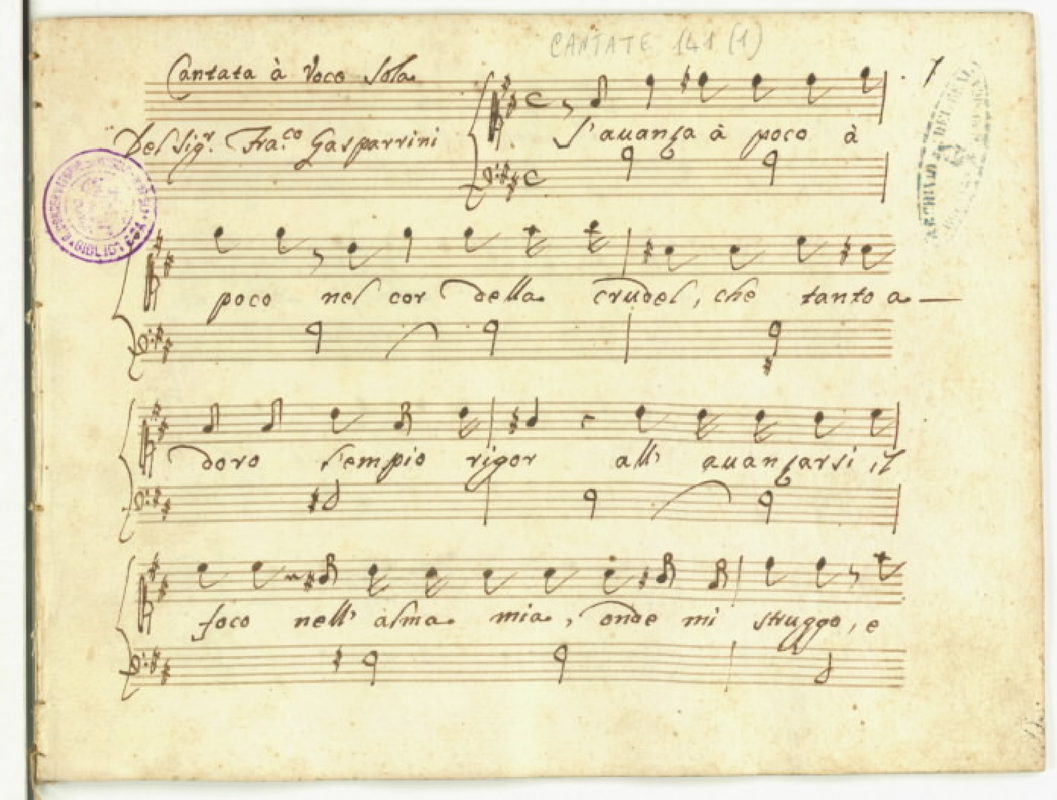 CANTATE 141 (1)
Cantata à Voce Sola
1
Del Sigr. Fra.co Gasparrini
S'auanza à poco à
poco nel cor della crudel, che tanto a
doro l'empio rigor all' auanzarsi il
foco nell' alma mia, onde mi struggo, e
ARCHIVIO DEL REAL
BIBLIOTECA